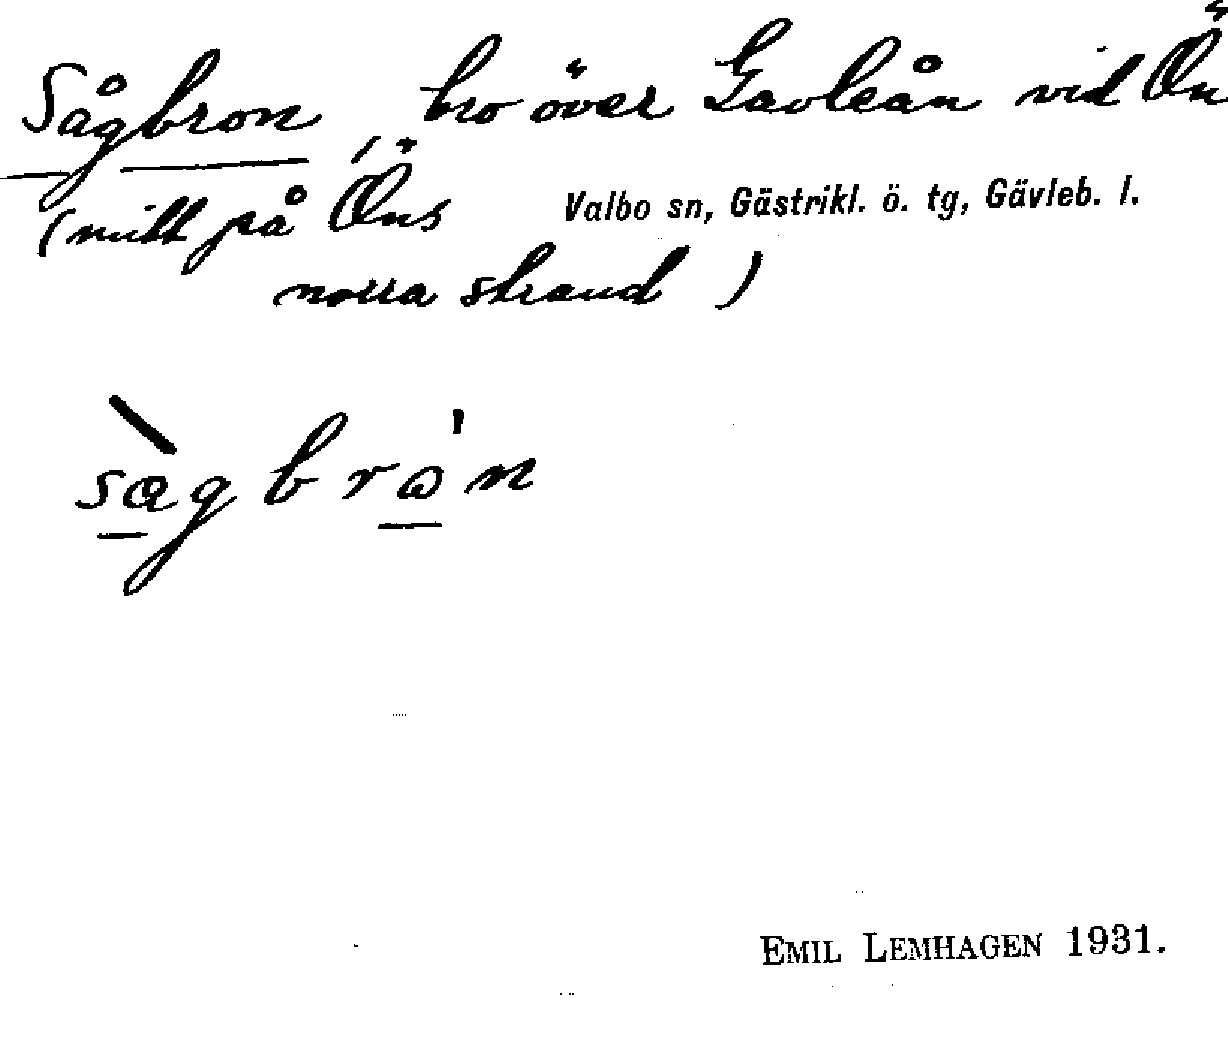 Sågbron, bro över Gavleån vid Ön
(mitt på Öns
Valbo sn, Gästrikl. ö. tg, Gävleb. l.
norra strand)
EMIL LEMHAGEN 1931.